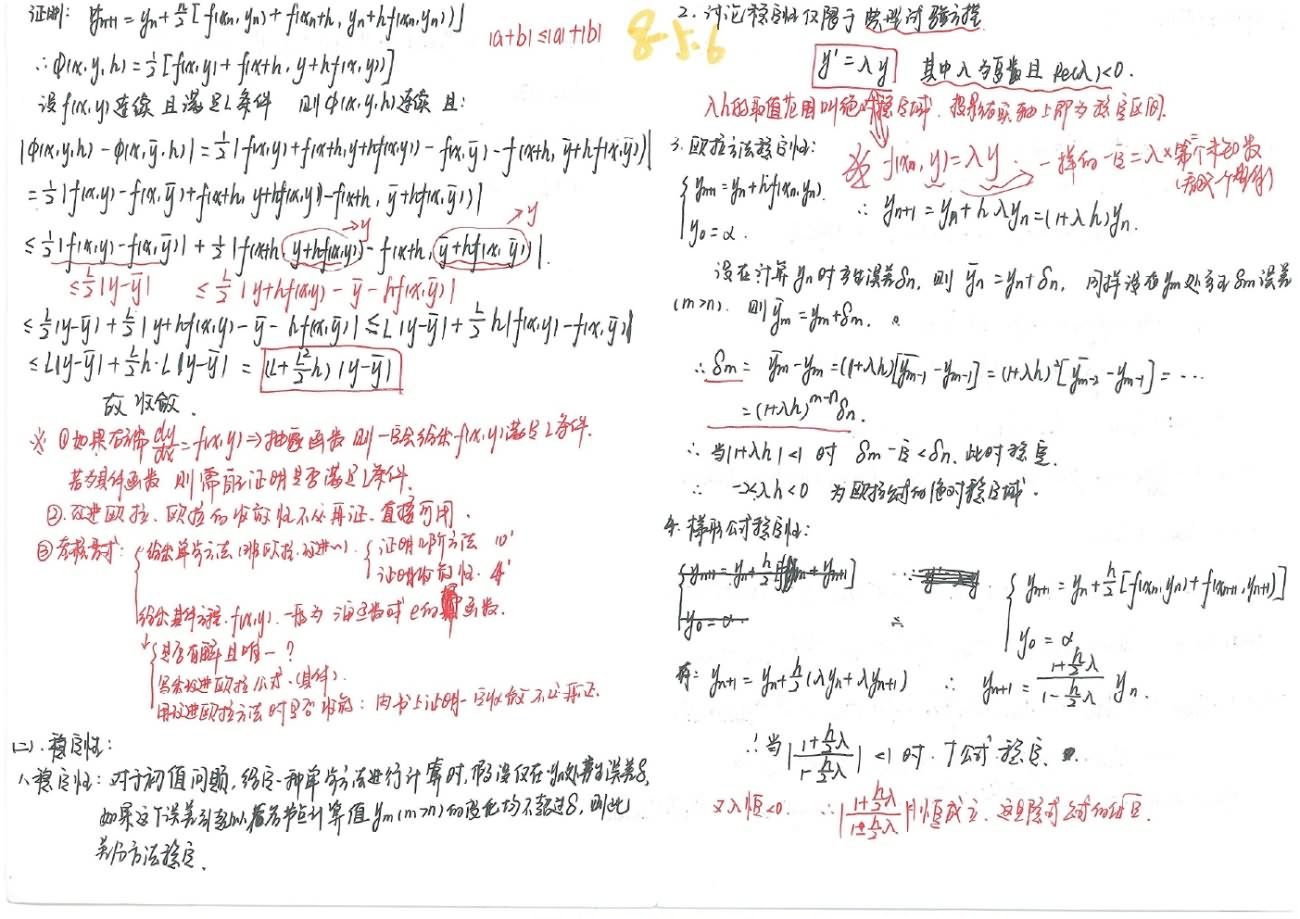 证明: y_{n+1} = y_n + h/2 [f(x_n, y_n) + f(x_n+h, y_n+hf(x_n,y_n))]
|a+b| ≤ |a|+|b|
8-5.6
∴ φ(x,y,h) = 1/2 [f(x,y) + f(x+h, y+hf(x,y))]
设 f(x,y) 连续 且满足L条件 则 φ(x,y,h) 连续 且:
|φ(x,y,h) - φ(x,ȳ,h)| = 1/2 |f(x,y) + f(x+h, y+hf(x,y)) - f(x,ȳ) - f(x+h, ȳ+hf(x,ȳ))|
= 1/2 |f(x,y) - f(x,ȳ) + f(x+h, y+hf(x,y)) - f(x+h, ȳ+hf(x,ȳ))|
→y →y
≤ 1/2 |f(x,y) - f(x,ȳ)| + 1/2 |f(x+h, y+hf(x,y)) - f(x+h, ȳ+hf(x,ȳ))|.
≤ L/2 |y-ȳ| ≤ L/2 |y+hf(x,y) - ȳ - hf(x,ȳ)|
≤ L/2 |y-ȳ| + L/2 |y+hf(x,y) - ȳ - hf(x,ȳ)| ≤ L|y-ȳ| + L/2 h|f(x,y) - f(x,ȳ)|
≤ L|y-ȳ| + L/2 h·L|y-ȳ| = (L + L²/2 h) |y-ȳ|
故收敛.
※ ①如果右端 dy/dx = f(x,y) ⇒ 抽象函数 则一定会给出 f(x,y) 满足L条件.
若为具体函数 则需证明是否满足L条件.
②.改进欧拉、欧拉的收敛性不必再证、直接可用.
③考核形式: 给出单步方法(非欧拉.改进..) 证明几阶方法 10'
证明收敛性. 4'
给出具体方程. f(x,y). 一般为 e的函数.
↓ 是否有解且唯一?
写出改进欧拉公式.(具体).
用改进欧拉方法时是否收敛: 因书上证明一定收敛 不必再证.
(二). 稳定性:
1、稳定性: 对于初值问题, 给定一种单步方法进行计算时, 假设仅在y_n处有误差δ,
如果这个误差引起以后各节点计算值 y_m (m>n) 的变化均不超过δ, 则此
差分方法稳定.
2. 讨论稳定性仅限于 典型试验方程.
y' = λy 其中λ为复数且 Re(λ)<0.
λh的取值范围叫绝对稳定域. 投影在实轴上即为稳定区间.
3. 欧拉方法稳定性:
※ f(x_n, y) = λy. 一样的 一定 = λ×第二个未知数
y_{n+1} = y_n + hf(x_n, y_n).
y_0 = α.
∴ y_{n+1} = y_n + hλy_n = (1+λh)y_n.
设在计算 y_n 时有误差δ_n, 则 ȳ_n = y_n + δ_n, 同样设在y_m处有δ_m误差
(m>n). 则 ȳ_m = y_m + δ_m.
∴ δ_m = ȳ_m - y_m = (1+λh)[ȳ_{m-1} - y_{m-1}] = (1+λh)²[ȳ_{m-2} - y_{m-1}] = ...
= (1+λh)^{m-n} δ_n.
∴ 当|1+λh|<1 时 δ_m 一定<δ_n. 此时稳定.
∴ -2<λh<0 为欧拉公式的绝对稳定域.
4. 梯形公式稳定性:
y_{n+1} = y_n + h/2 [f(x_n,y_n) + f(x_{n+1}, y_{n+1})]
y_0 = α
有: y_{n+1} = y_n + h/2 (λy_n + λy_{n+1}) ∴ y_{n+1} = (1+h/2 λ)/(1-h/2 λ) y_n.
∴ 当 |(1+h/2 λ)/(1-h/2 λ)| < 1 时. 公式稳定.
又λ恒<0. ∴ |(1+h/2 λ)/(1-h/2 λ)|<1恒成立. 这是隐式公式的